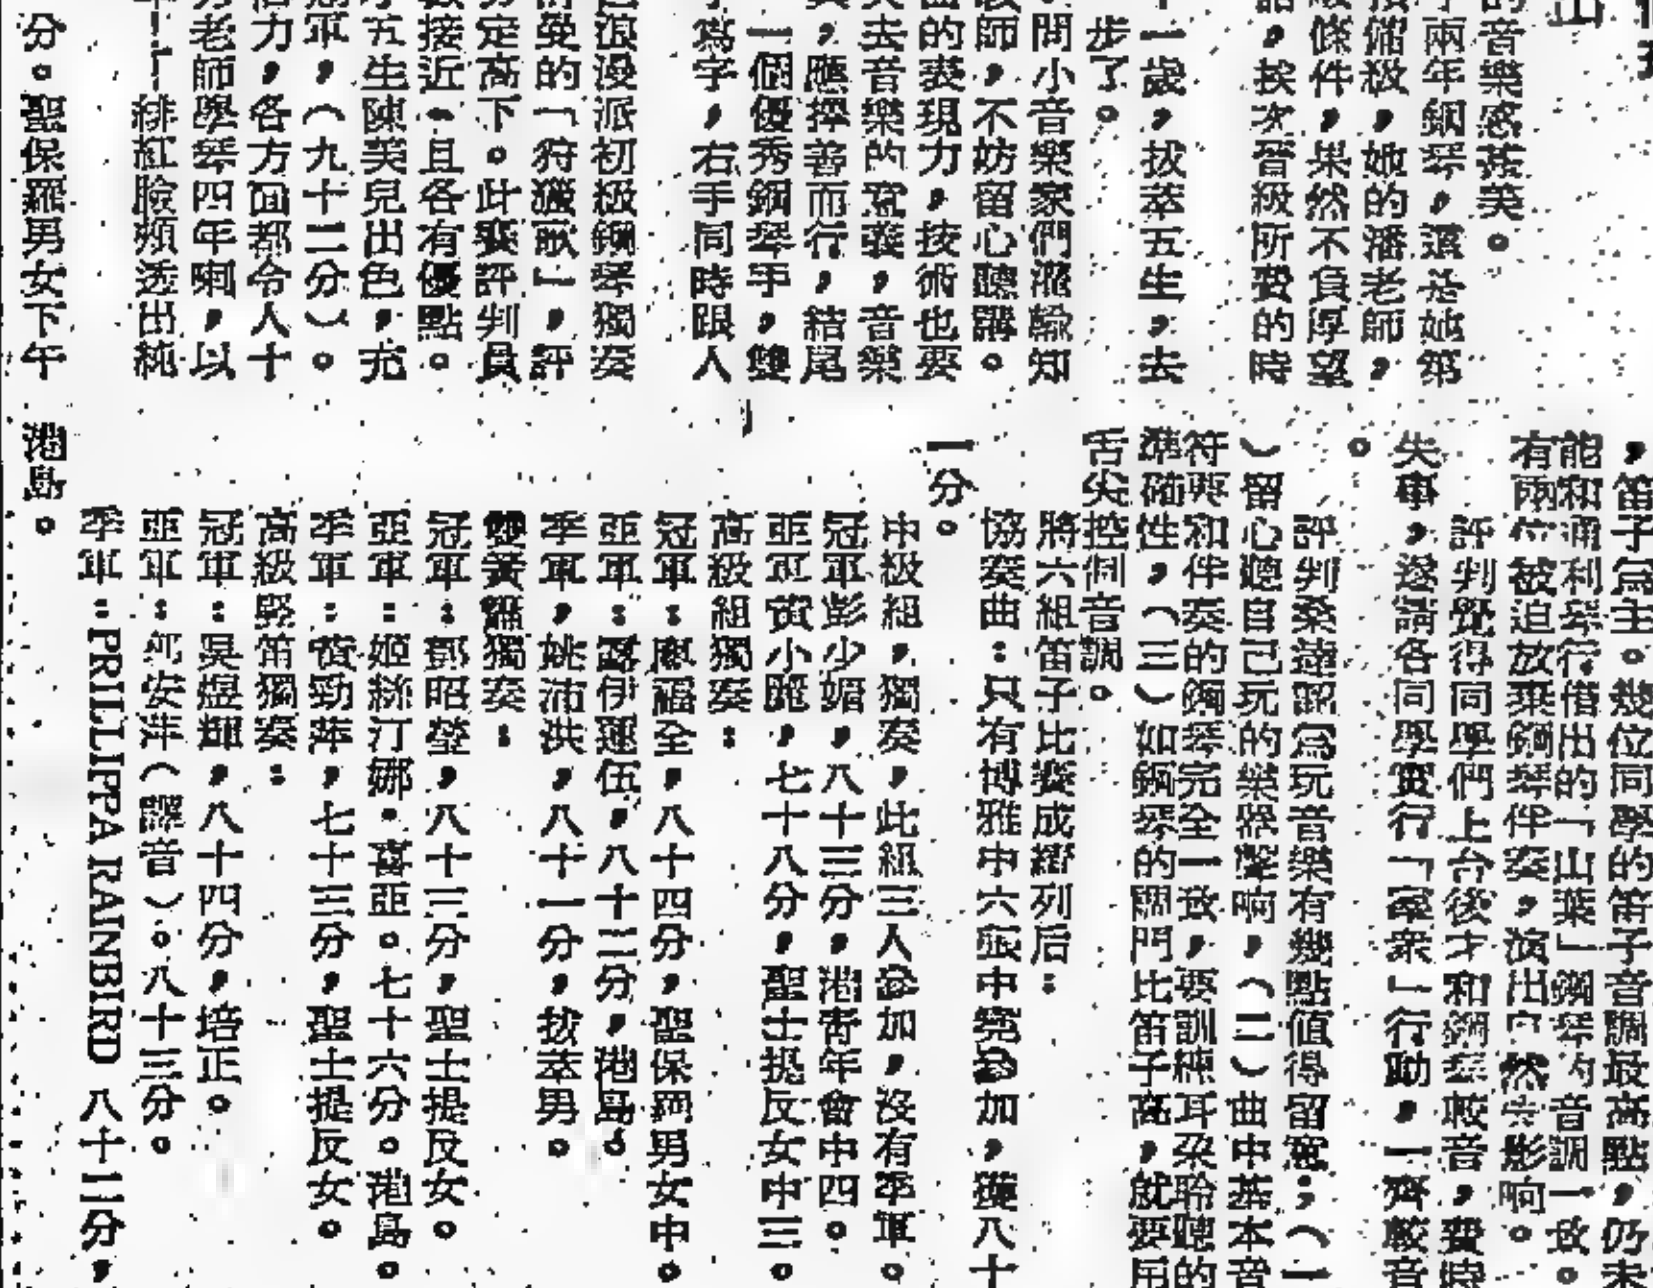 的音樂感甚美。
兩年鋼琴，還是她第
級，她的潘老師，
條件，果然不負厚望
，挨次晉級所費的時
一歲，拔萃五生，去
步了。
問小音樂家們灌輸知
師，不妨留心聽講。
的表現力，按術也要
去音樂的意義，音樂
，應揮善而行，結尾
一個優秀鋼琴手，雙
寫字，右手同時跟人
浪漫派初級鋼琴獨奏
受的「狩獵歌」，評
定高下。此賽評判員
接近。且各有優點。
五生陳美兒出色，充
軍，（九十二分）。
力，各方面都令人十
老師學琴四年喇，以
緋紅臉頰透出純
分。聖保羅男女下午
，笛子為主。幾位同學的笛子音調最高點，仍未
能和通利琴行借出的「山葉」鋼琴的音調一致。
有兩位被迫放棄鋼琴伴奏，演出自然失影响。
評判覺得同學們上台後才和鋼琴較音，費時
失事，遂請各同學實行「羣衆」行動，一齊較音
。
評判桑達認為玩音樂有幾點值得留意；（一
）留心聽自己玩的樂器聲响，（二）曲中基本音
符要和伴奏的鋼琴完全一致，要訓練耳朶聆聽的
準確性，（三）如鋼琴的調門比笛子高，就要用
舌尖控制音調。
將六組笛子比賽成績列后：
協奏曲：只有博雅中六張中堯參加，獲八十
一分。
中級組，獨奏，此組三人參加，沒有季軍。
冠軍彭少媚，八十三分，港青年會中四。
亞軍黃小麗，七十八分，聖士提反女中三。
高級組獨奏：
冠軍：廖福全，八十四分，聖保羅男女中。
亞軍：羅伊運伍，八十二分，港島。
季軍，姚沛洪，八十一分，拔萃男。
雙簧簫獨奏：
冠軍：鄧昭瑩，八十三分，聖士提反女。
亞軍：姬絲汀娜·喜亞。七十六分。港島。
季軍：黃勁萍，七十三分，聖士提反女。
高級豎笛獨奏：
冠軍：吳煜輝，八十四分，培正。
亞軍：何安萍（譯音）。八十三分。
季軍：PRILLIPPA RANBIRD 八十二分，
港島。